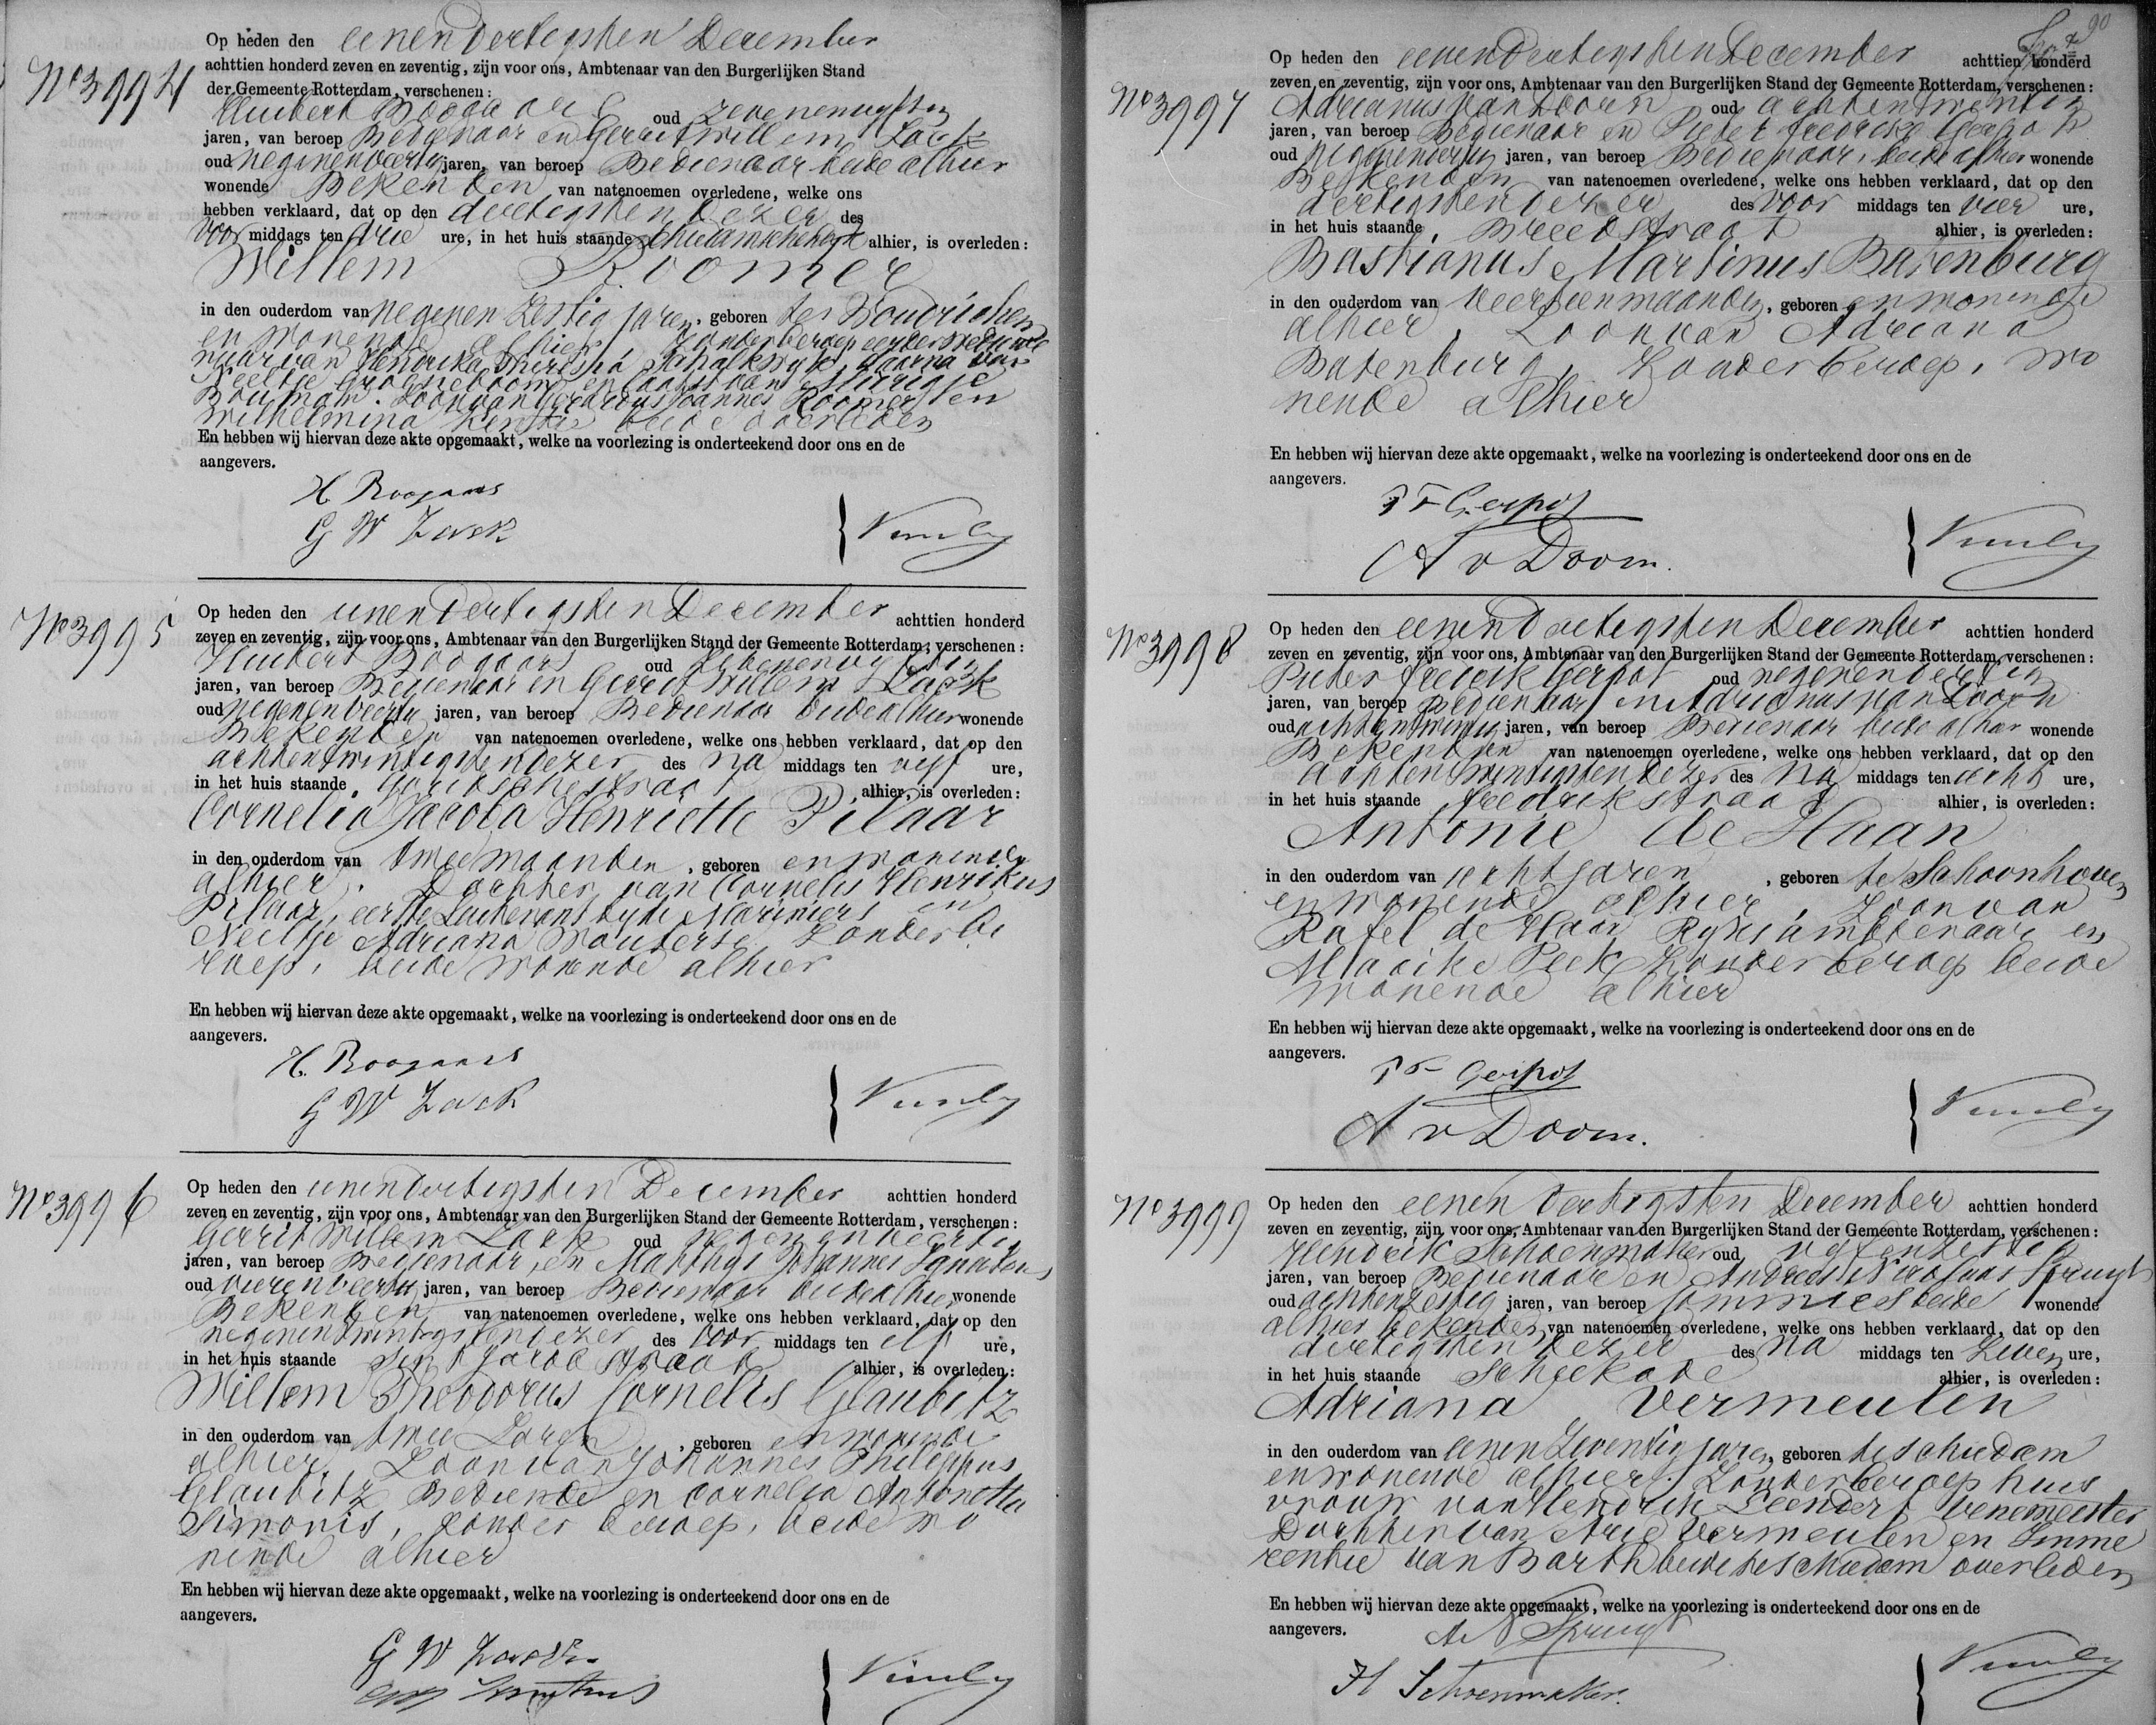 Op heden den eenendertigsten December
achttien honderd zeven en zeventig, zijn voor ons, Ambtenaar van den Burgerlijken Stand
No 3994 der Gemeente Rotterdam, verschenen:
Huibert Boogaars oud zevenenvyftig
jaren, van beroep Bedienaar en Gerrit Willem Lack
oud negenenveertig jaren, van beroep Bedienaar beide alhier
wonende Bekenden van natenoemen overledene, welke ons
hebben verklaard, dat op den dertigsten dezer des
voor middags ten drie ure, in het huis staande Schiedamschedyk alhier, is overleden:
Willem Roomer
in den ouderdom van negenenzestig jaren, geboren te Woudrichem
en wonende alhier, zonder beroep eerder weduwe
naar van Hendrika Theresia Schalkwyk, daarna van
Neeltje Groeneboom en laatst van Merrigje
Bouman. Zoon van Gerardus Joannes Roomer en
Wilhelmina beide overleden
En hebben wij hiervan deze akte opgemaakt, welke na voorlezing is onderteekend door ons en de
aangevers.
H. Boogaars
G W Lack
No 3995 Op heden den eenendertigsten December achttien honderd
zeven en zeventig, zijn voor ons, Ambtenaar van den Burgerlijken Stand der Gemeente Rotterdam, verschenen:
Huibert Boogaars oud zevenenvyftig
jaren, van beroep Bedienaar en Gerrit Willem Lack
oud negenenveertig jaren, van beroep Bedienaar beide alhier wonende
Bekenden van natenoemen overledene, welke ons hebben verklaard, dat op den
achtentwintigsten dezer des na middags ten vyf ure,
in het huis staande Goudschestraat alhier, is overleden:
Cornelia Jacoba Henriette Pilaar
in den ouderdom van twee maanden, geboren en wonende
alhier, Dochter van Cornelis Henrikus
Pilaar, eerste Luitenant by de Mariniers en
Neeltje Adriana Wouterse, zonder be
roep, beide wonende alhier
En hebben wij hiervan deze akte opgemaakt, welke na voorlezing is onderteekend door ons en de
aangevers.
H. Boogaars
G W Lack
No 3996 Op heden den eenendertigsten December achttien honderd
zeven en zeventig, zijn voor ons, Ambtenaar van den Burgerlijken Stand der Gemeente Rotterdam, verschenen:
Gerrit Willem Lack oud negenenveertig
jaren, van beroep Bedienaar, en Mathys Johannes Ignatius
oud vierenveertig jaren, van beroep Bedienaar beide alhier wonende
Bekenden van natenoemen overledene, welke ons hebben verklaard, dat op den
negenentwintigsten dezer des voor middags ten elf ure,
in het huis staande Sint Jacobstraat alhier, is overleden:
Willem Theodorus Cornelis Glaubitz
in den ouderdom van twee Jaren, geboren en wonende
alhier, Zoon van Johannes Philippus
Glaubitz, Bediende en Cornelia Antonetta
Simonis, zonder beroep, beide wo
nende alhier
En hebben wij hiervan deze akte opgemaakt, welke na voorlezing is onderteekend door ons en de
aangevers.
G W Lack
90
No 3997 Op heden den eenendertigsten December achttien honderd
zeven en zeventig, zijn voor ons, Ambtenaar van den Burgerlijken Stand der Gemeente Rotterdam, verschenen:
Adrianus van Doorn oud achtentwintig
jaren, van beroep Bedienaar en Pieter Fredrik Gerpot
oud negenendertig jaren, van beroep Bedienaar, beide alhier wonende
Bekenden van natenoemen overledene, welke ons hebben verklaard, dat op den
dertigsten dezer des voor middags ten vier ure,
in het huis staande Breedstraat alhier, is overleden:
Bastianus Martinus Batenburg
in den ouderdom van veertien maanden, geboren en wonende
alhier, Zoon van Adriana
Batenburg, zonder beroep, wo
nende alhier
En hebben wij hiervan deze akte opgemaakt, welke na voorlezing is onderteekend door ons en de
aangevers.
P F Gerpot
A v Doorn.
No 3998 Op heden den eenendertigsten December achttien honderd
zeven en zeventig, zijn voor ons, Ambtenaar van den Burgerlijken Stand der Gemeente Rotterdam, verschenen:
Pieter Fredrik Gerpot oud negenendertig
jaren, van beroep Bedienaar en Adrianus van Doorn
oud achtentwintig jaren, van beroep Bedienaar beide alhier wonende
Bekenden van natenoemen overledene, welke ons hebben verklaard, dat op den
achtentwintigsten dezer des na middags ten acht ure,
in het huis staande Fredrikstraat alhier, is overleden:
Antonie de Haan
in den ouderdom van acht jaren, geboren te Schoonhoven
en wonende alhier, Zoon van
Rafel de Haan, Ryksambtenaar en
Maaike Peek, zonder beroep beide
wonende alhier
En hebben wij hiervan deze akte opgemaakt, welke na voorlezing is onderteekend door ons en de
aangevers.
P F Gerpot
A v Doorn.
No 3999 Op heden den eenendertigsten December achttien honderd
zeven en zeventig, zijn voor ons, Ambtenaar van den Burgerlijken Stand der Gemeente Rotterdam, verschenen:
Hendrik Schoenmaker oud vyfenzestig
jaren, van beroep Bedienaar en Andreas Nicolaas Spruyt
oud achtenzestig jaren, van beroep Commies beide wonende
alhier bekenden van natenoemen overledene, welke ons hebben verklaard, dat op den
dertigsten dezer des na middags ten zeven ure,
in het huis staande Schiekade alhier, is overleden:
Adriana Vermeulen
in den ouderdom van eenenzeventig jaren, geboren te Schiedam
en wonende alhier. Zonder beroep huis
vrouw van Hendrik Leendert Venemeester
Dochter van Arie Vermeulen en Imme
rentie van Barth beide te Schiedam overleden
En hebben wij hiervan deze akte opgemaakt, welke na voorlezing is onderteekend door ons en de
aangevers.
A N Spruyt
H Schoenmaker.